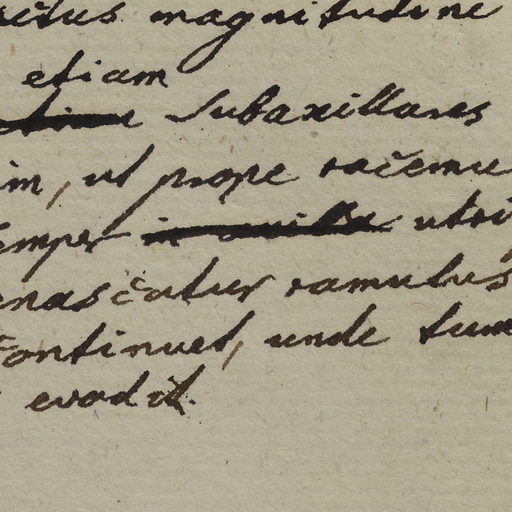 ctus magnitudine
etiam
subaxillares
im, ut prope racemu
emper in axilla utri
enascatur ramulus
continuet, unde tum
evadit.